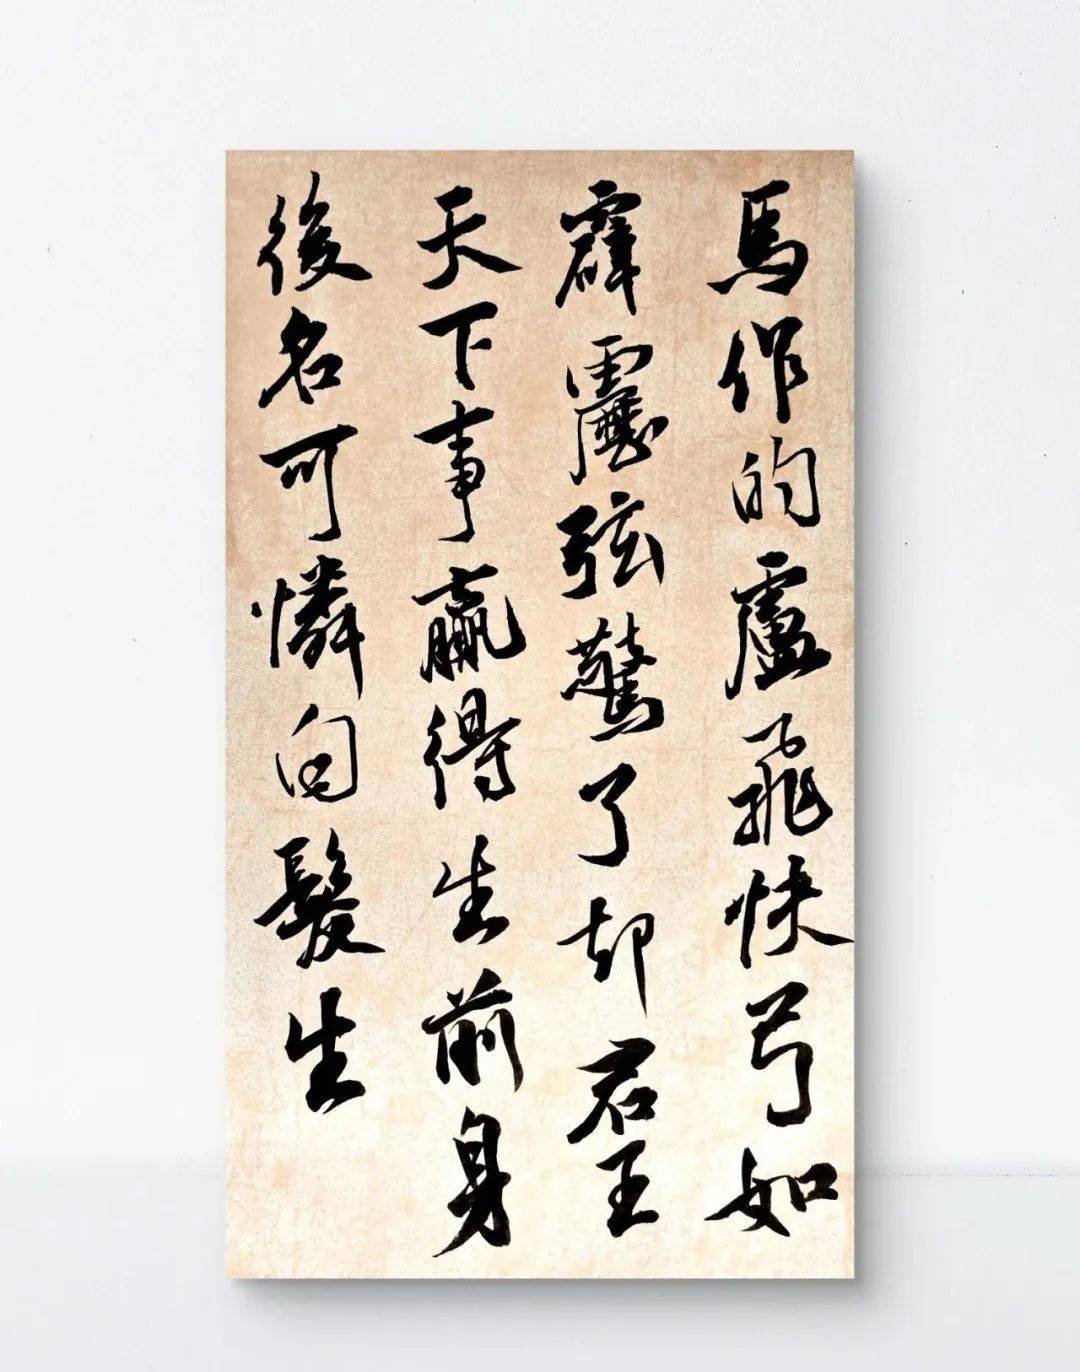 馬作的盧飛快弓如
霹靂弦驚了却君王
天下事贏得生前身
後名可憐白髮生